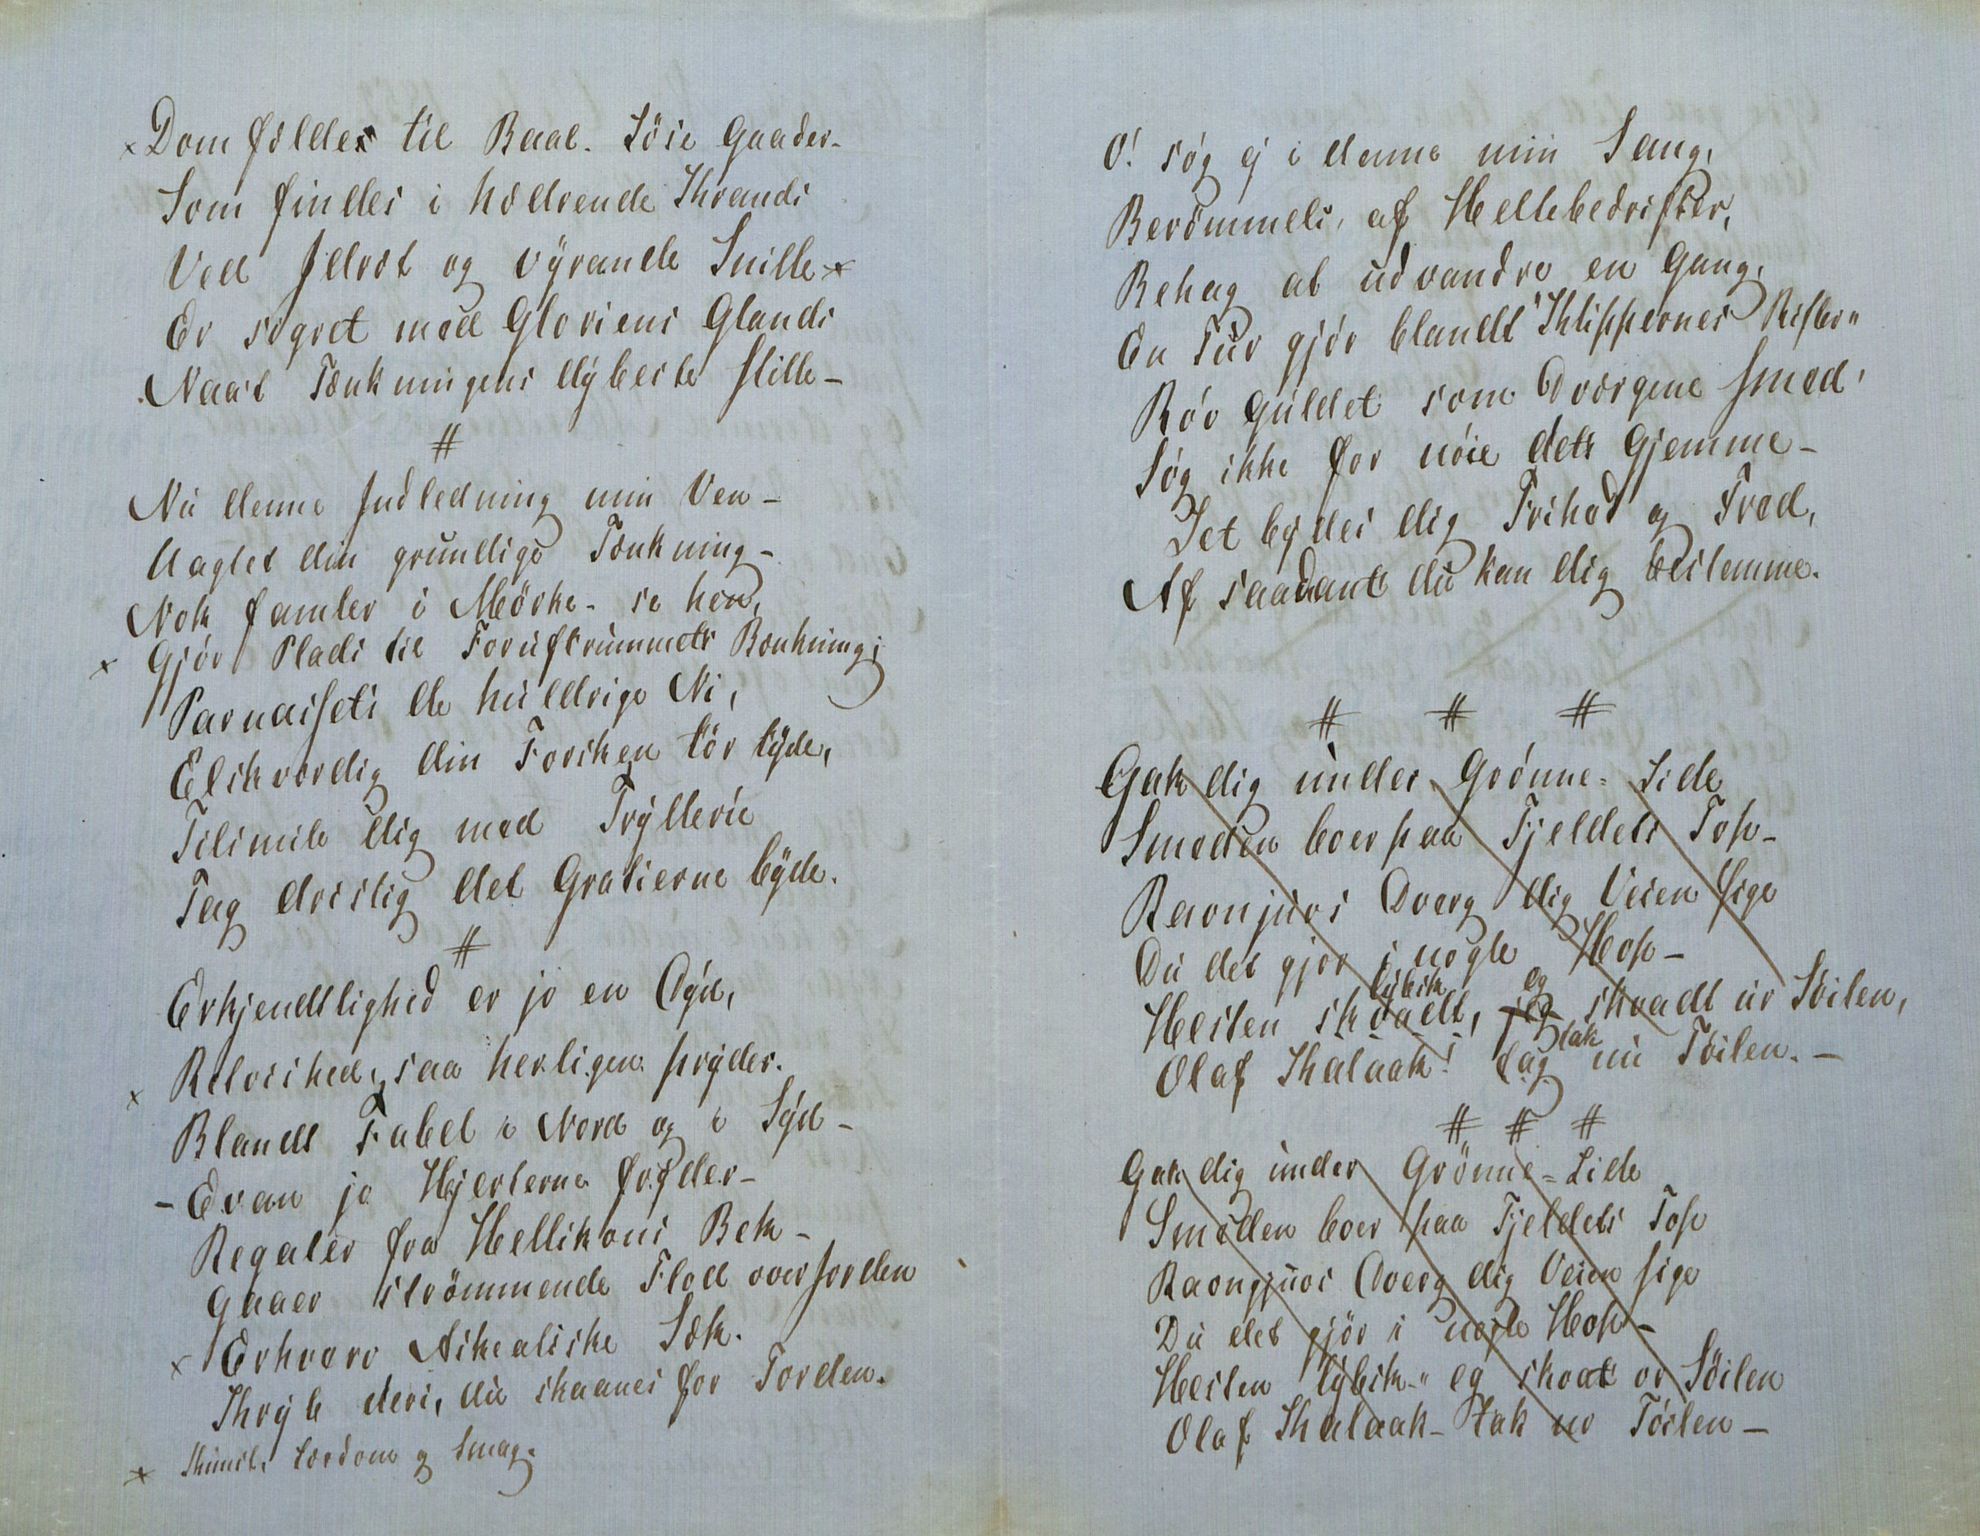 x Domfældes til Baal. Löse Gaader-
Som findes i hædrende Khrands
Ved Idræt og vÿrande Snille x
Er søgret med Gloriens Glands
Naar Tænkningens dÿbeste stille-
#
Nu denne Indledning min Ven-
Uagtet din grundige Tænkning-
Nok famler i Mörke- se hen,
x Gjör Plads til Fornuftrummets Bænkning;
Parnassets de huldrige Ni,
Elskværdig din Forsken tör tÿde,
Tilsmile dig med Trÿllerie
Tag dristig det Gratierne bÿde.
#
Erkjendtlighed er jo en Dÿd,
x Belevished, saa herligen prÿder.
Blandt Fabel i Nord og i Sÿd-
- Evan jo Hjerterne frÿder-
Regaler fra Hellikons Bek-
Gaaer strömmende Flod over Jorden
x Erhverv Askealiske Sæk.
Khrÿb deri, du skaanes for Torden.
x Khunst, Lærdom og Smag.
O! søg ej i denne min Sang,
Berömmels, af Heltebedrifter,
Behag at udvandre en Gang,
En Tur gjör blandt "Khlippernes Rifter"
Röv Guldet som Dværgene smed,
Søg ikke for nöie dets Gjemme-
Jet byder dig Frihed og Fred,
Af saadant du kan dig bestemme.
# # #
Gak dig under Grönne-Lide
Smeden boer paa Fjeldets Top-
Raonjuvs Dverg dig Veien sige
Du det gjör i nogle Hop-
Hesten skvadt, lÿbsk jeg eg skvadt ur Söilen,
Olaf Khalaak! tag tak nu Töilen.-
# # #
Gak dig under Grönne-Lide
Smeden boer paa Fjeldets Top
Raongjuvs Dverg dig Veien sige
Du det gjör i nogle Hop-
Hesten lÿbsk-" eg skvat or Söilen
Olaf Khalaak- Stak ur Töilen-